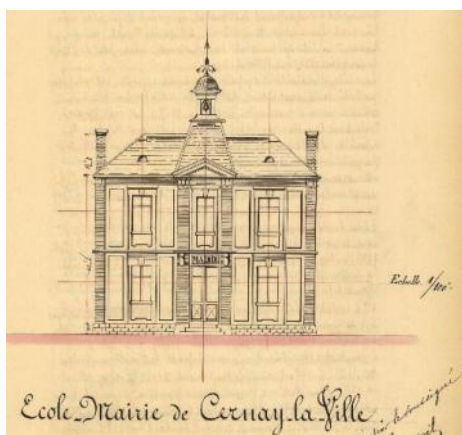 MAIRIE
Echelle 1/100e
Ecole_Mairie de Cernay_la_Ville